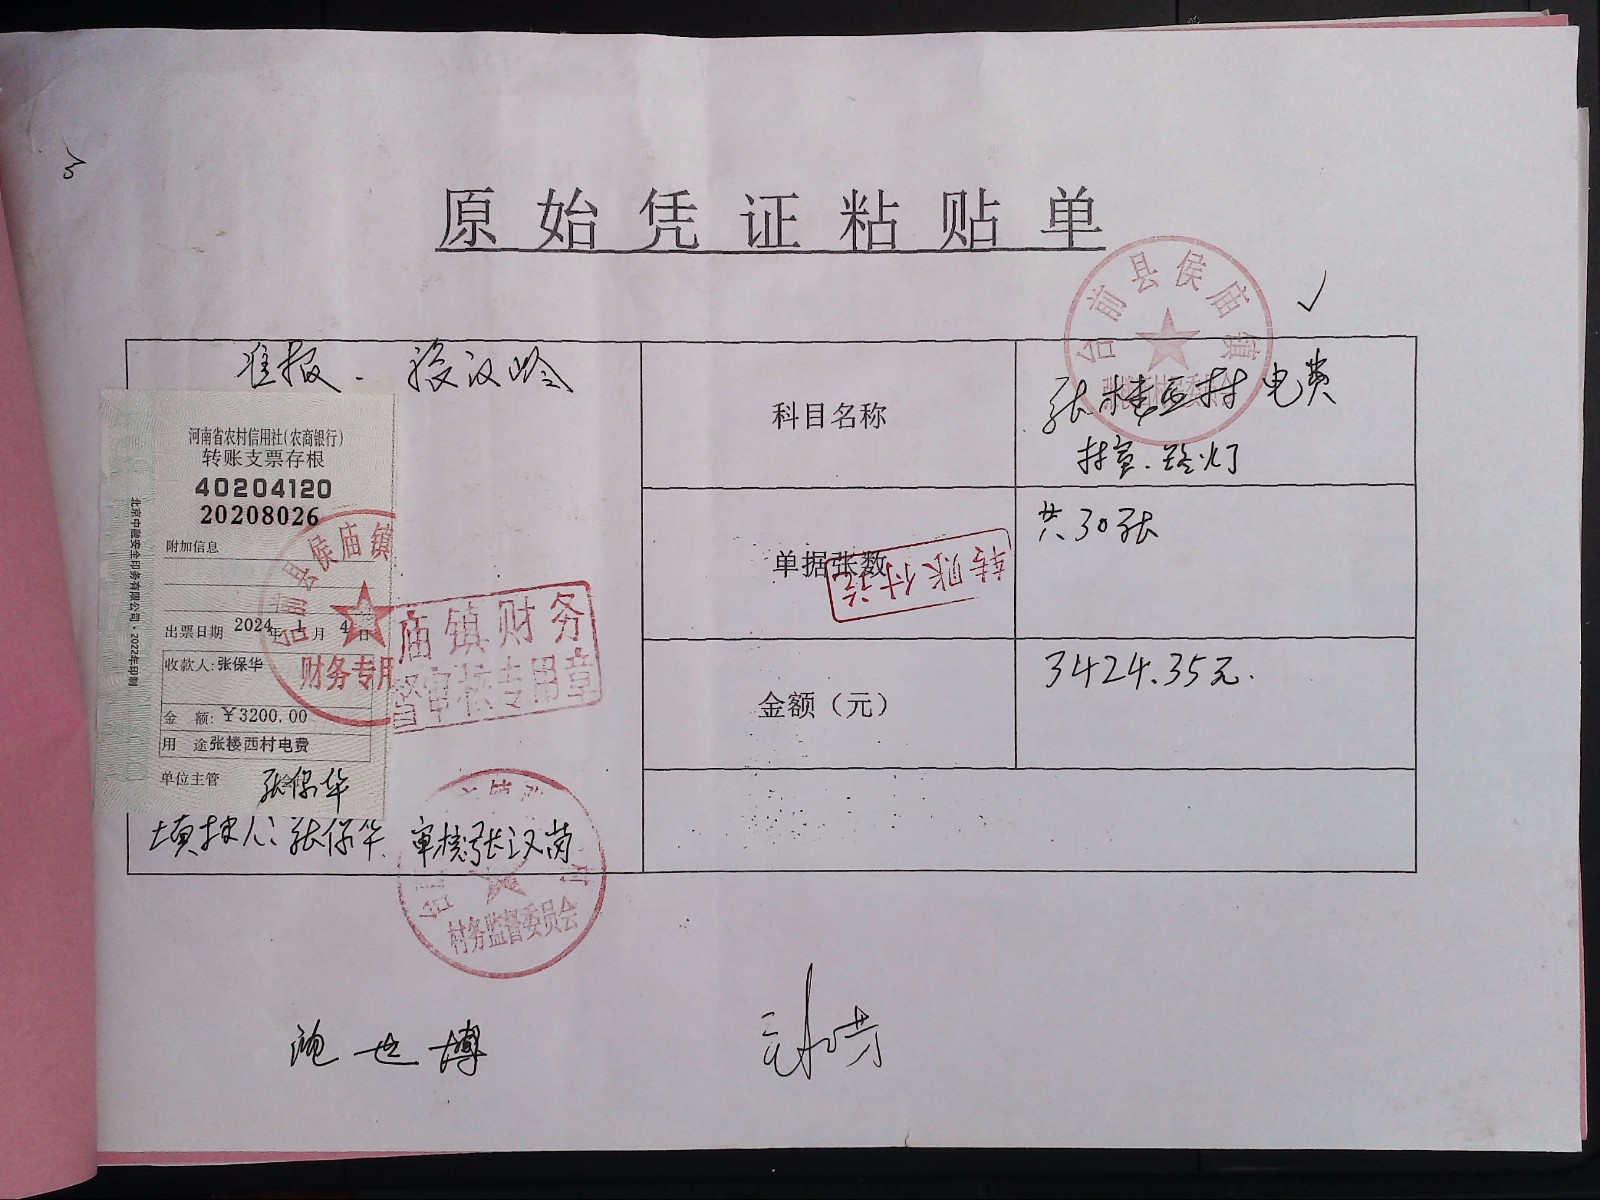 原始凭证粘贴单
准报.
河南省农村信用社(农商银行)
转账支票存根
40204120
20208026
附加信息
出票日期 2024年1月4日
收款人:张保华
金 额:¥3200.00
用 途张楼西村电费
单位主管
张保华
北京中融安全印务有限公司·2022年印制
台前县侯庙镇
财务专用
庙镇财务
督审核专用章
填报人:张保华 审核张汉芮
村务监督委员会
科目名称
张楼西村电费
村室.路灯
台前县侯庙镇
张楼西村村民委员会
单据张数
共30张
转账付讫
金额(元)
3424.35元.